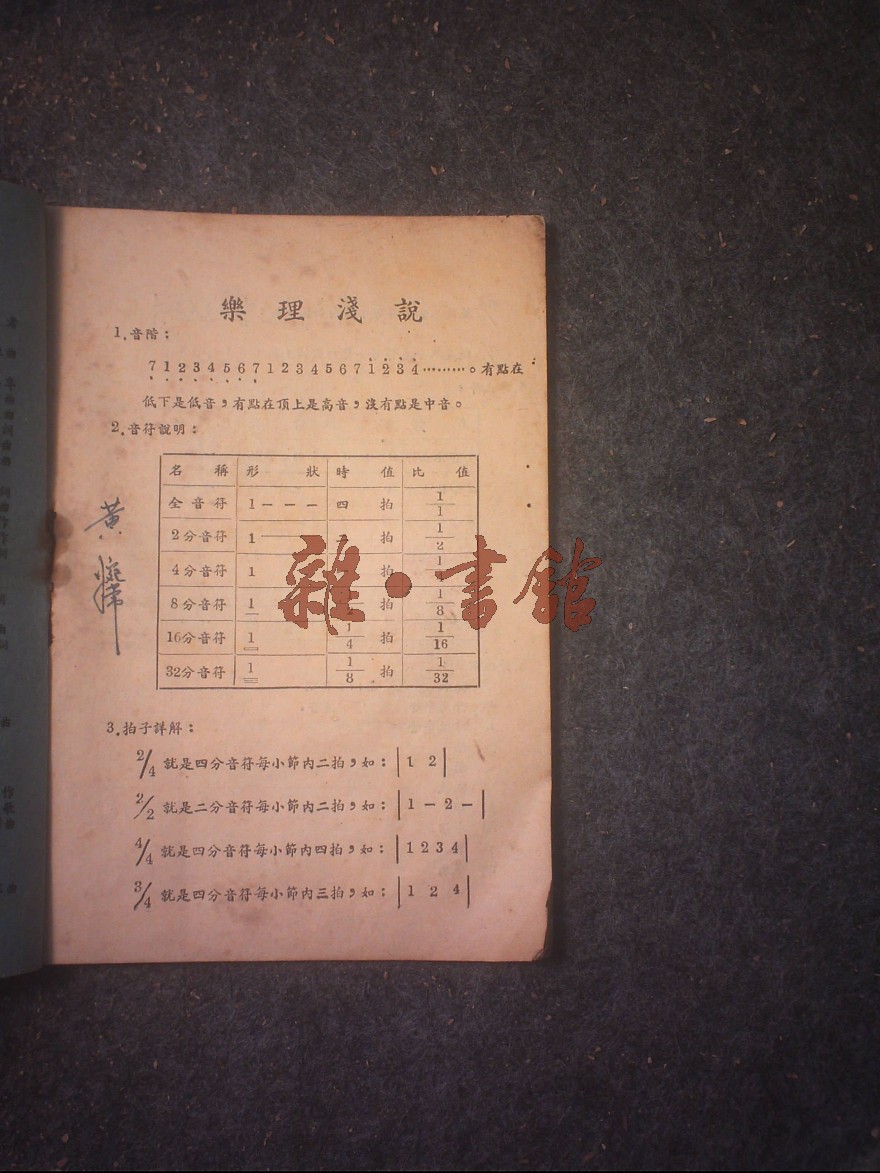 樂理淺說
1.音階：
7 1 2 3 4 5 6 7 1 2 3 4 5 6 7 1 2 3 4………。有點在
低下是低音，有點在頂上是高音，沒有點是中音。
2.音符說明：
名稱 形狀 時值 比值
全音符 1 - - - 四拍 1/1
2分音符 1 — 拍 1/2
4分音符 1 拍 1
8分音符 1 拍 1/8
16分音符 1 1/4拍 1/16
32分音符 1 1/8拍 1/32
黃
雜·書館
3.拍子詳解：
2/4 就是四分音符每小節內二拍，如：| 1 2 |
2/2 就是二分音符每小節內二拍，如：| 1 - 2 - |
4/4 就是四分音符每小節內四拍，如：| 1 2 3 4 |
3/4 就是四分音符每小節內三拍，如：| 1 2 4 |